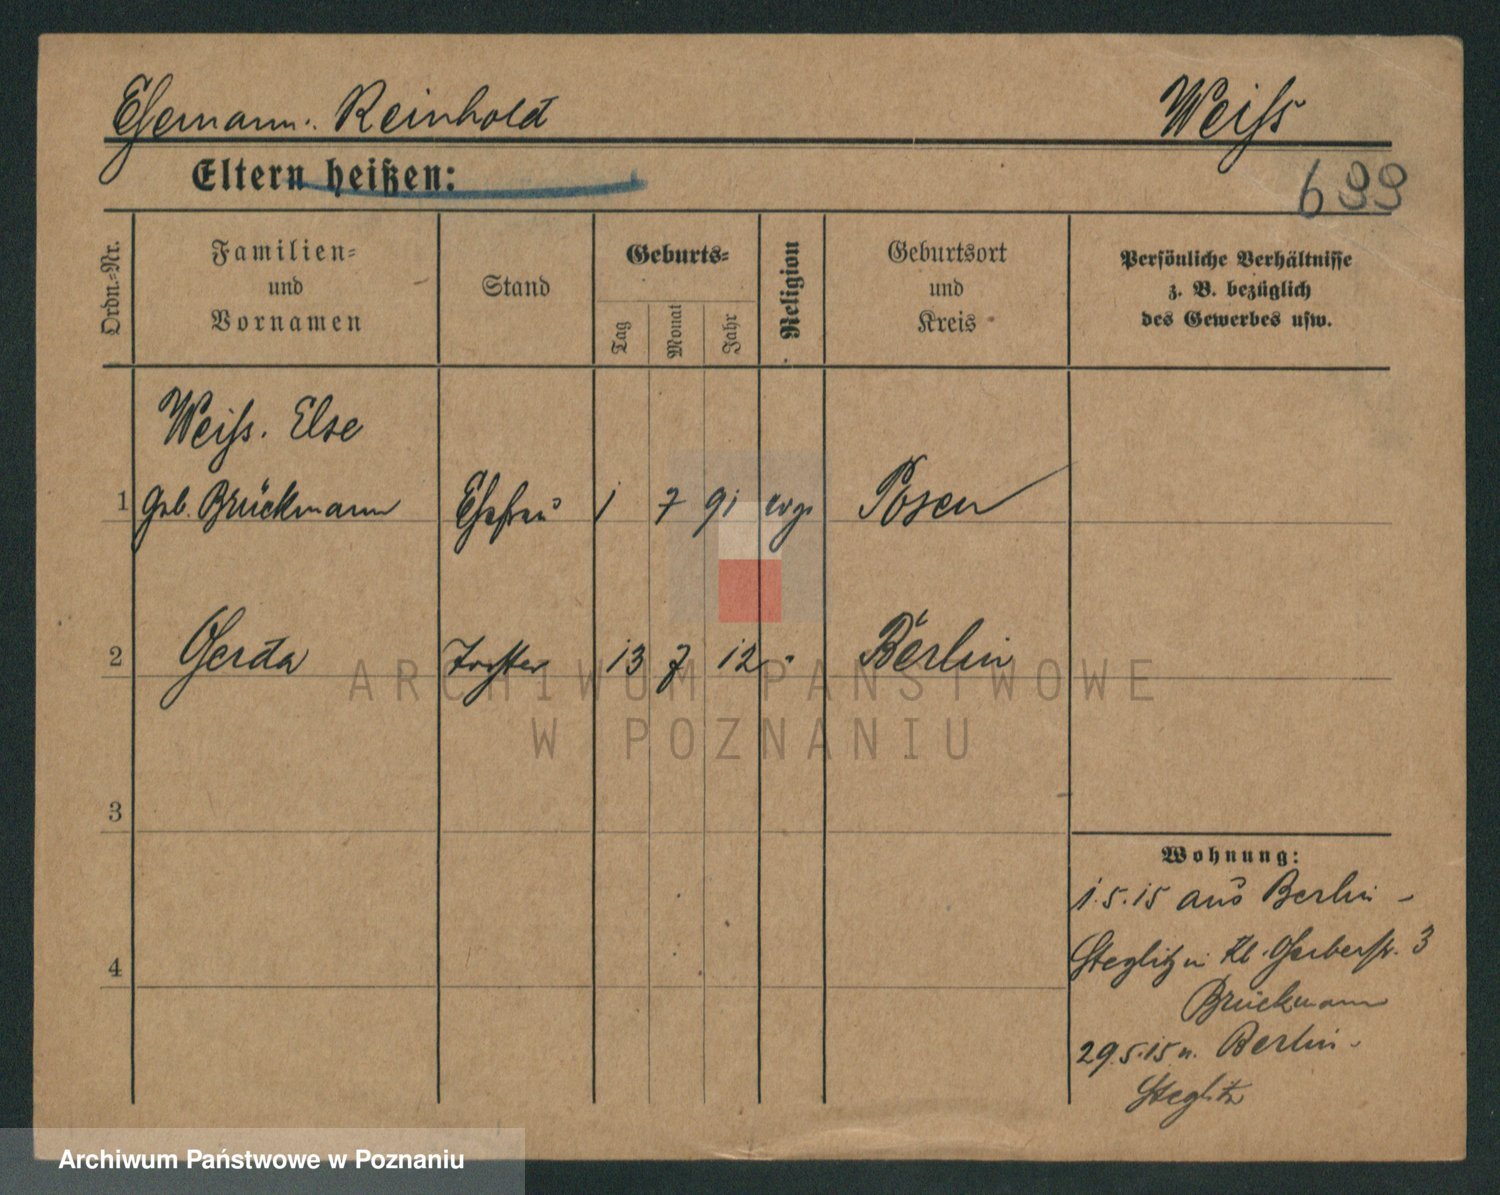 Ehemann: Reinhold Weiß
Eltern heißen:
699
Ordn.-Nr.
Familien-
und
Vornamen
Stand
Geburts-
Tag
Monat
Jahr
Religion
Geburtsort
und
Kreis
Persönliche Verhältnisse
z. B. bezüglich
des Gewerbes usw.
Weiß. Else
1 geb. Brückmann Ehefrau 1 7 91 evgl Posen
2 Gerda Tochter 13 7 12 " Berlin
3
4
Wohnung:
1.5.15 aus Berlin-
Steglitz n. Kl. Gerberstr. 3
Brückmann
29.5.15 n. Berlin-
Steglitz
ARCHIWUM PAŃSTWOWE
W POZNANIU
Archiwum Państwowe w Poznaniu